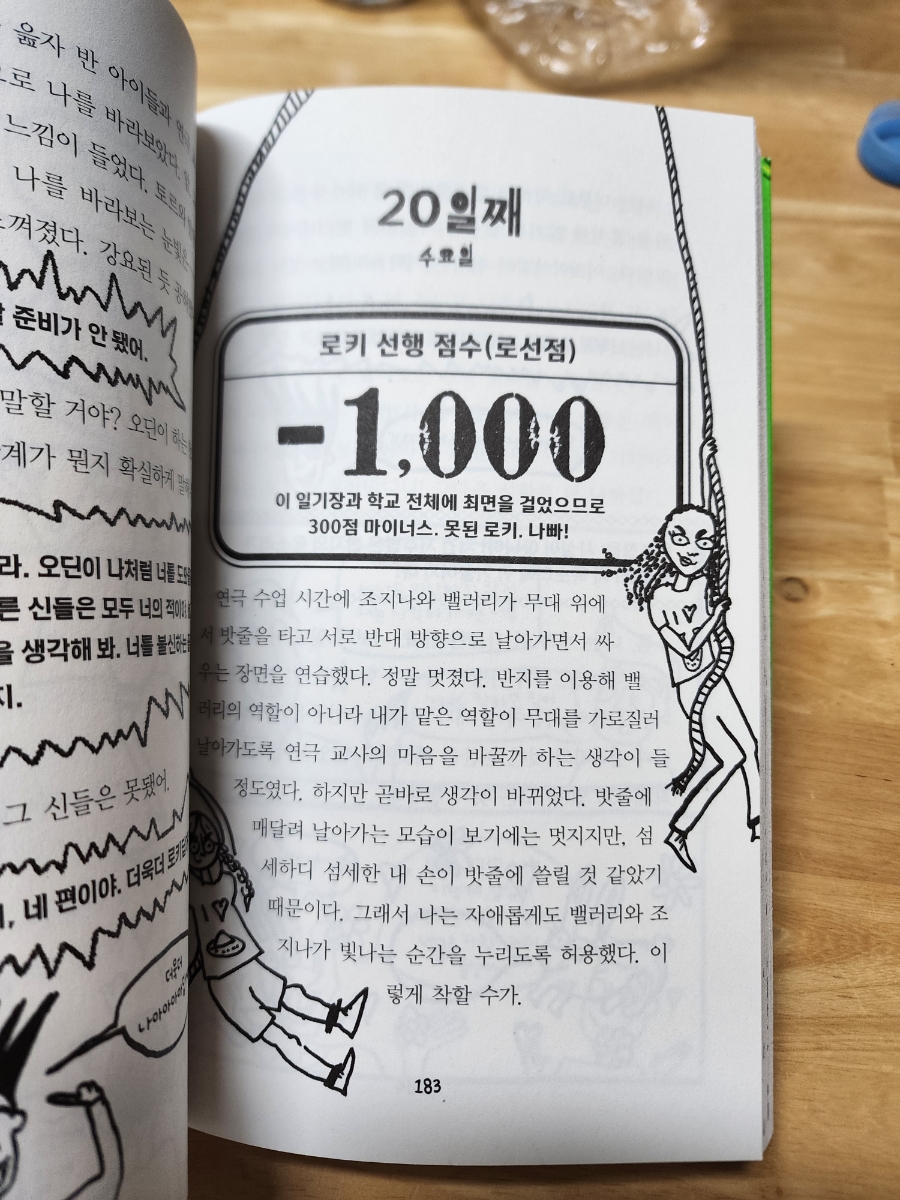 읊자 반 아이들과
로 나를 바라보았다.
느낌이 들었다. 토르와
나를 바라보는 눈빛은
껴졌다. 강요된 듯
준비가 안 됐어.
말할 거야? 오딘이 하는
계가 뭔지 확실하게
라. 오딘이 나처럼 너를
른 신들은 모두 너의 적이야
을 생각해 봐. 너를 불신하는
지.
그 신들은 못됐어.
네 편이야. 더욱더
더욱더
나아아아아
20일째
수요일
로키 선행 점수(로선점)
-1,000
이 일기장과 학교 전체에 최면을 걸었으므로
300점 마이너스. 못된 로키. 나빠!
연극 수업 시간에 조지나와 밸러리가 무대 위에
서 밧줄을 타고 서로 반대 방향으로 날아가면서 싸
우는 장면을 연습했다. 정말 멋졌다. 반지를 이용해 밸
러리의 역할이 아니라 내가 맡은 역할이 무대를 가로질러
날아가도록 연극 교사의 마음을 바꿀까 하는 생각이 들
정도였다. 하지만 곧바로 생각이 바뀌었다. 밧줄에
매달려 날아가는 모습이 보기에는 멋지지만, 섬
세하디 섬세한 내 손이 밧줄에 쓸릴 것 같았기
때문이다. 그래서 나는 자애롭게도 밸러리와 조
지나가 빛나는 순간을 누리도록 허용했다. 이
렇게 착할 수가.
183